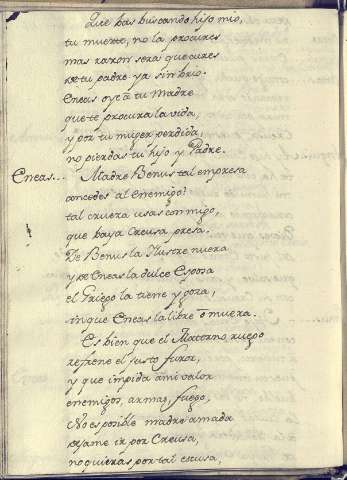 Que bas buscando hijo mio,
tu muerte, no la procures
mas razon sera que cures
de tu padre ya sin brio.
Eneas oye â tu Madre
que te procura la vida,
y por tu muger perdida,
no pierdas tu hijo y Padre.
Eneas... Madre Benus tal empresa
concedes al Enemigo?
tal crueza usas conmigo,
que baya Creusa presa.
De Benus la Ilustre nuera
y de Eneas la dulce Esposa
el Griego la tiene y goza,
sin que Eneas la libre ò muera.
Es bien que el Materno ruego
refrene el justo furor,
y que impida â mi valor
enemigos, armas, fuego,
No es posible madre amada
dejame ir por Creusa,
no quieras por tal escusa,